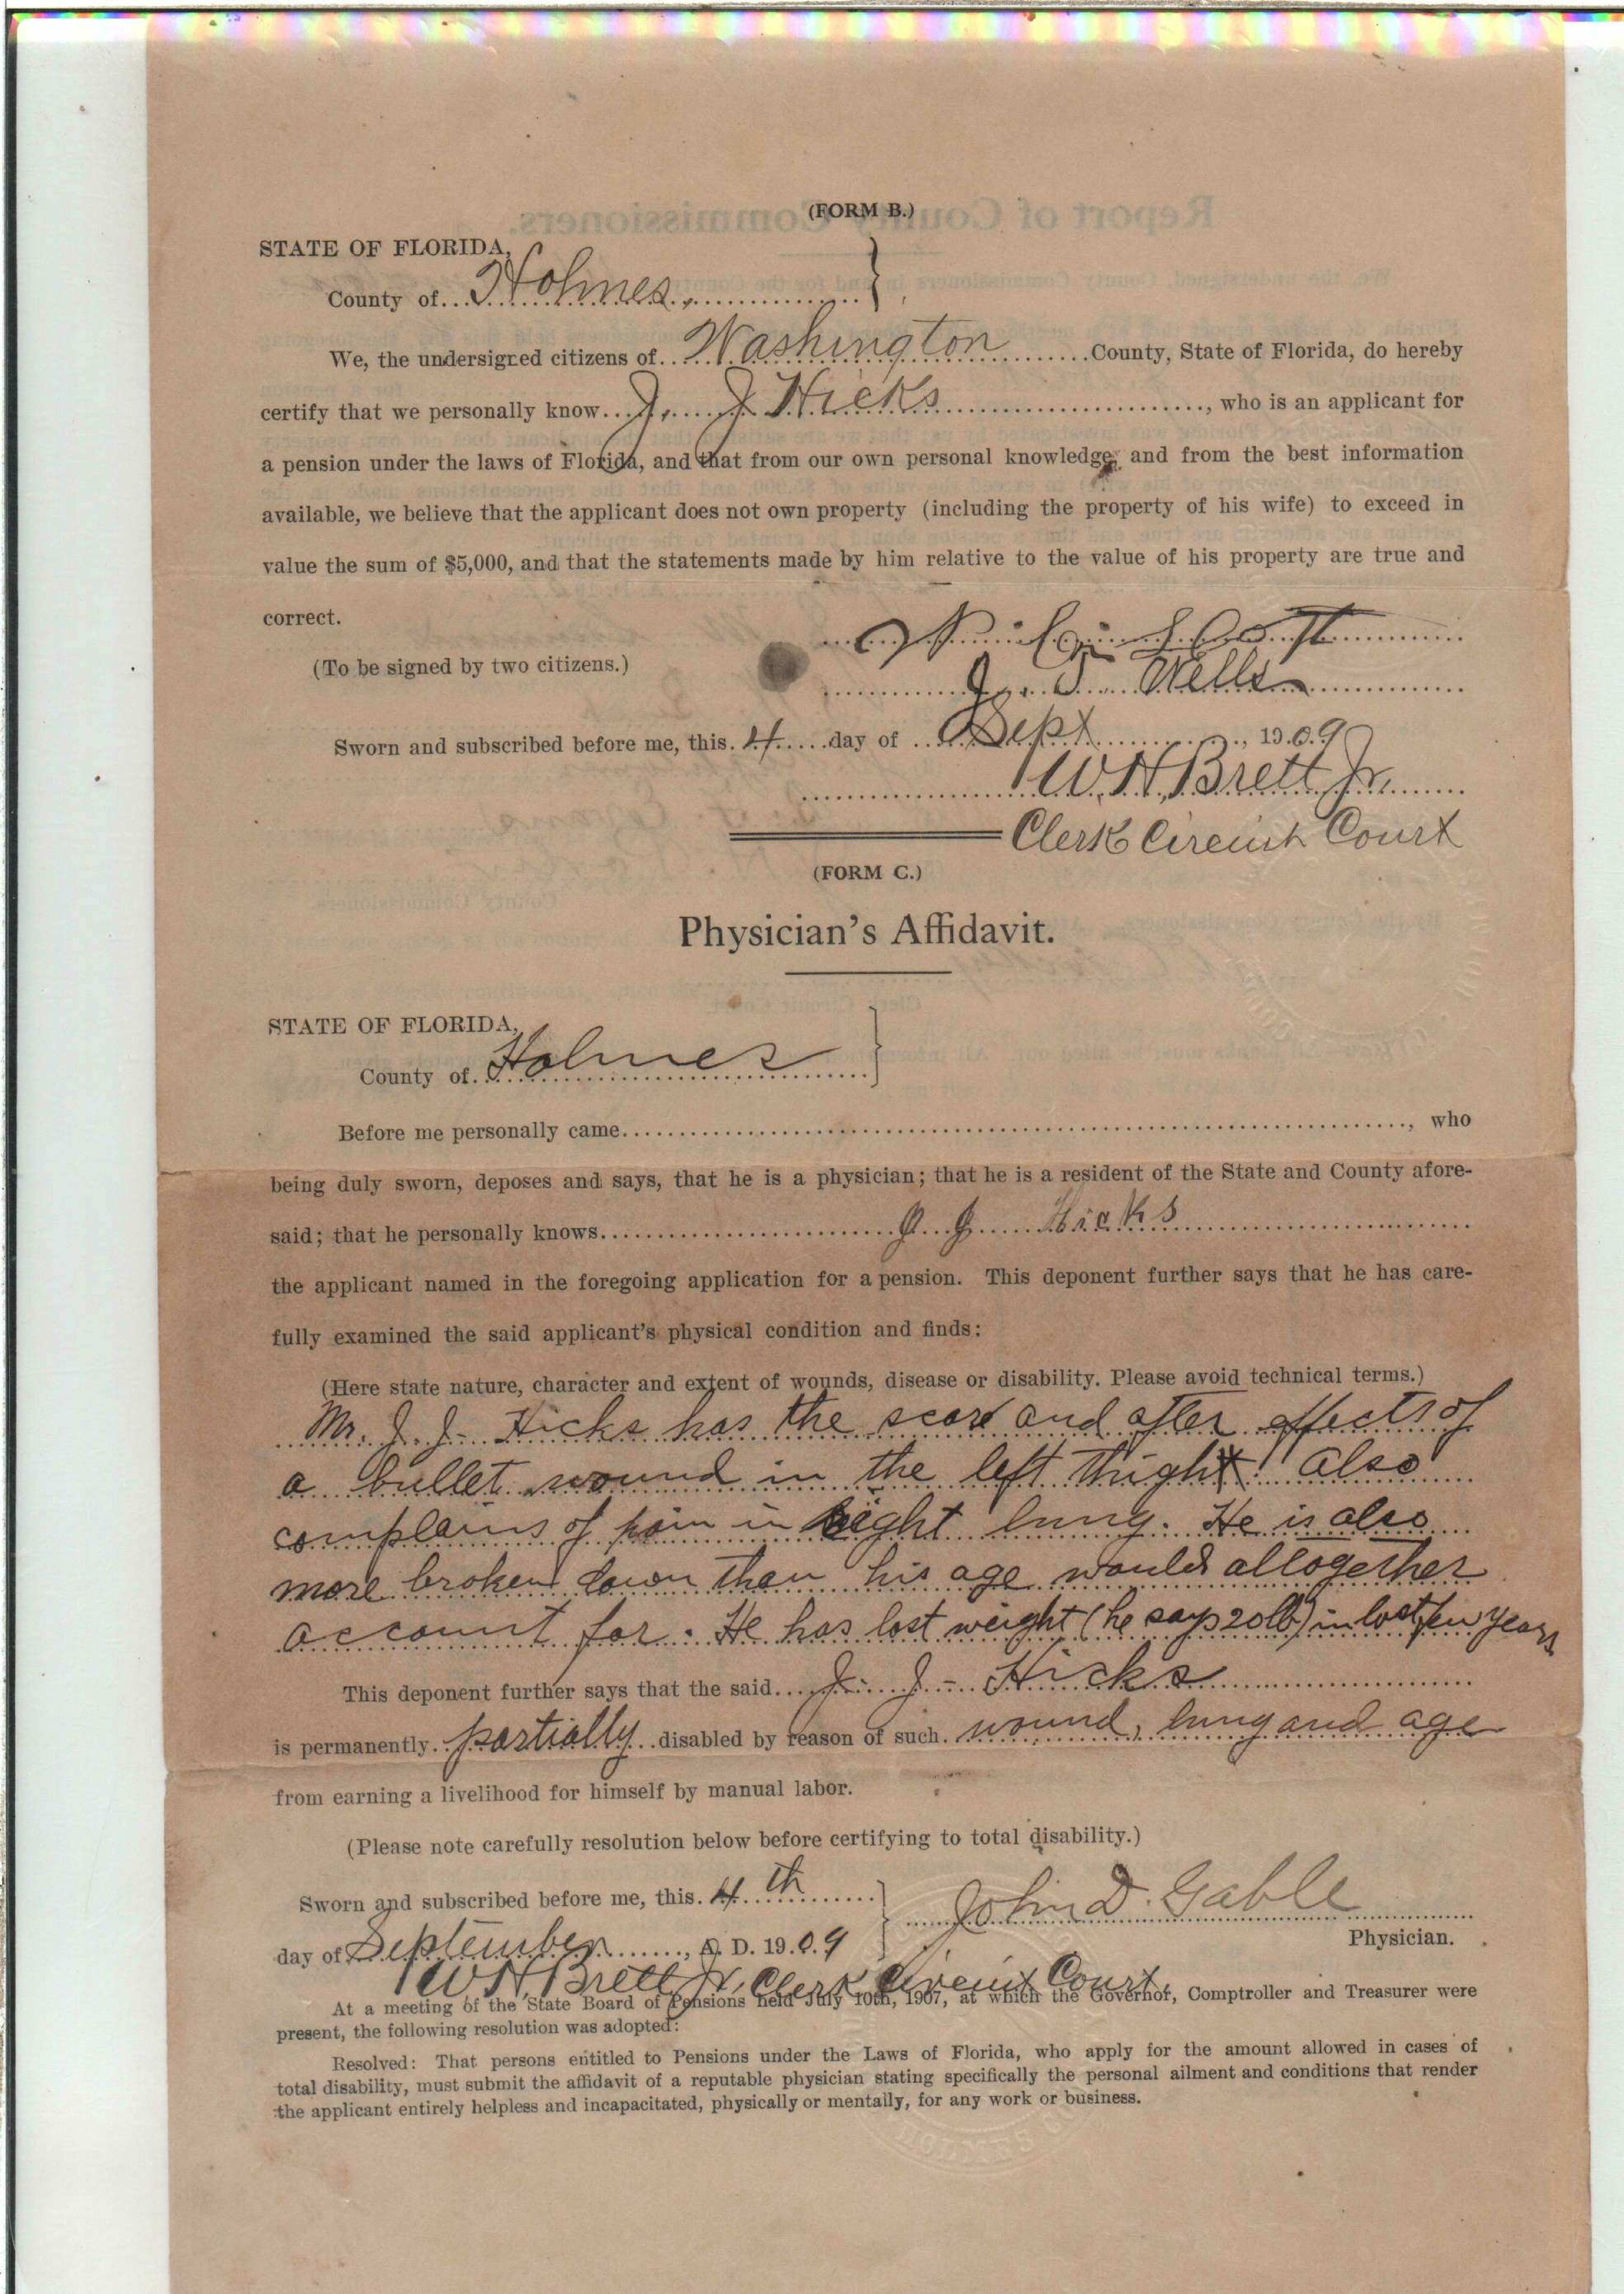 (FORM B.)
STATE OF FLORIDA,
County of Holmes
We, the undersigned citizens of Washington County, State of Florida, do hereby
certify that we personally know J. J Hicks, who is an applicant for
a pension under the laws of Florida, and that from our own personal knowledge, and from the best information
available, we believe that the applicant does not own property (including the property of his wife) to exceed in
value the sum of $5,000, and that the statements made by him relative to the value of his property are true and
correct.
(To be signed by two citizens.)
J. T. Wells
Sworn and subscribed before me, this 4 day of Sept, 1909
W. H. Brett Jr.
Clerk Circuit Court
(FORM C.)
Physician's Affidavit.
STATE OF FLORIDA,
County of Holmes
Before me personally came, who
being duly sworn, deposes and says, that he is a physician; that he is a resident of the State and County afore-
said; that he personally knows J J Hicks
the applicant named in the foregoing application for a pension. This deponent further says that he has care-
fully examined the said applicant's physical condition and finds:
(Here state nature, character and extent of wounds, disease or disability. Please avoid technical terms.)
Mr. J. J. Hicks has the scar and after effects of
a bullet wound in the left thigh. Also
complains of pain in right lung. He is also
more broken down than his age would altogether
account for. He has lost weight (he says 20lb) in last few years
This deponent further says that the said J. J. Hicks
is permanently partially disabled by reason of such wound, lung and age
from earning a livelihood for himself by manual labor.
(Please note carefully resolution below before certifying to total disability.)
Sworn and subscribed before me, this 4th
John D. Gable
Physician.
day of September, A. D. 1909
W H Brett Jr. Clerk Circuit Court.
At a meeting of the State Board of Pensions held July 10th, 1907, at which the Governor, Comptroller and Treasurer were
present, the following resolution was adopted:
Resolved: That persons entitled to Pensions under the Laws of Florida, who apply for the amount allowed in cases of
total disability, must submit the affidavit of a reputable physician stating specifically the personal ailment and conditions that render
the applicant entirely helpless and incapacitated, physically or mentally, for any work or business.